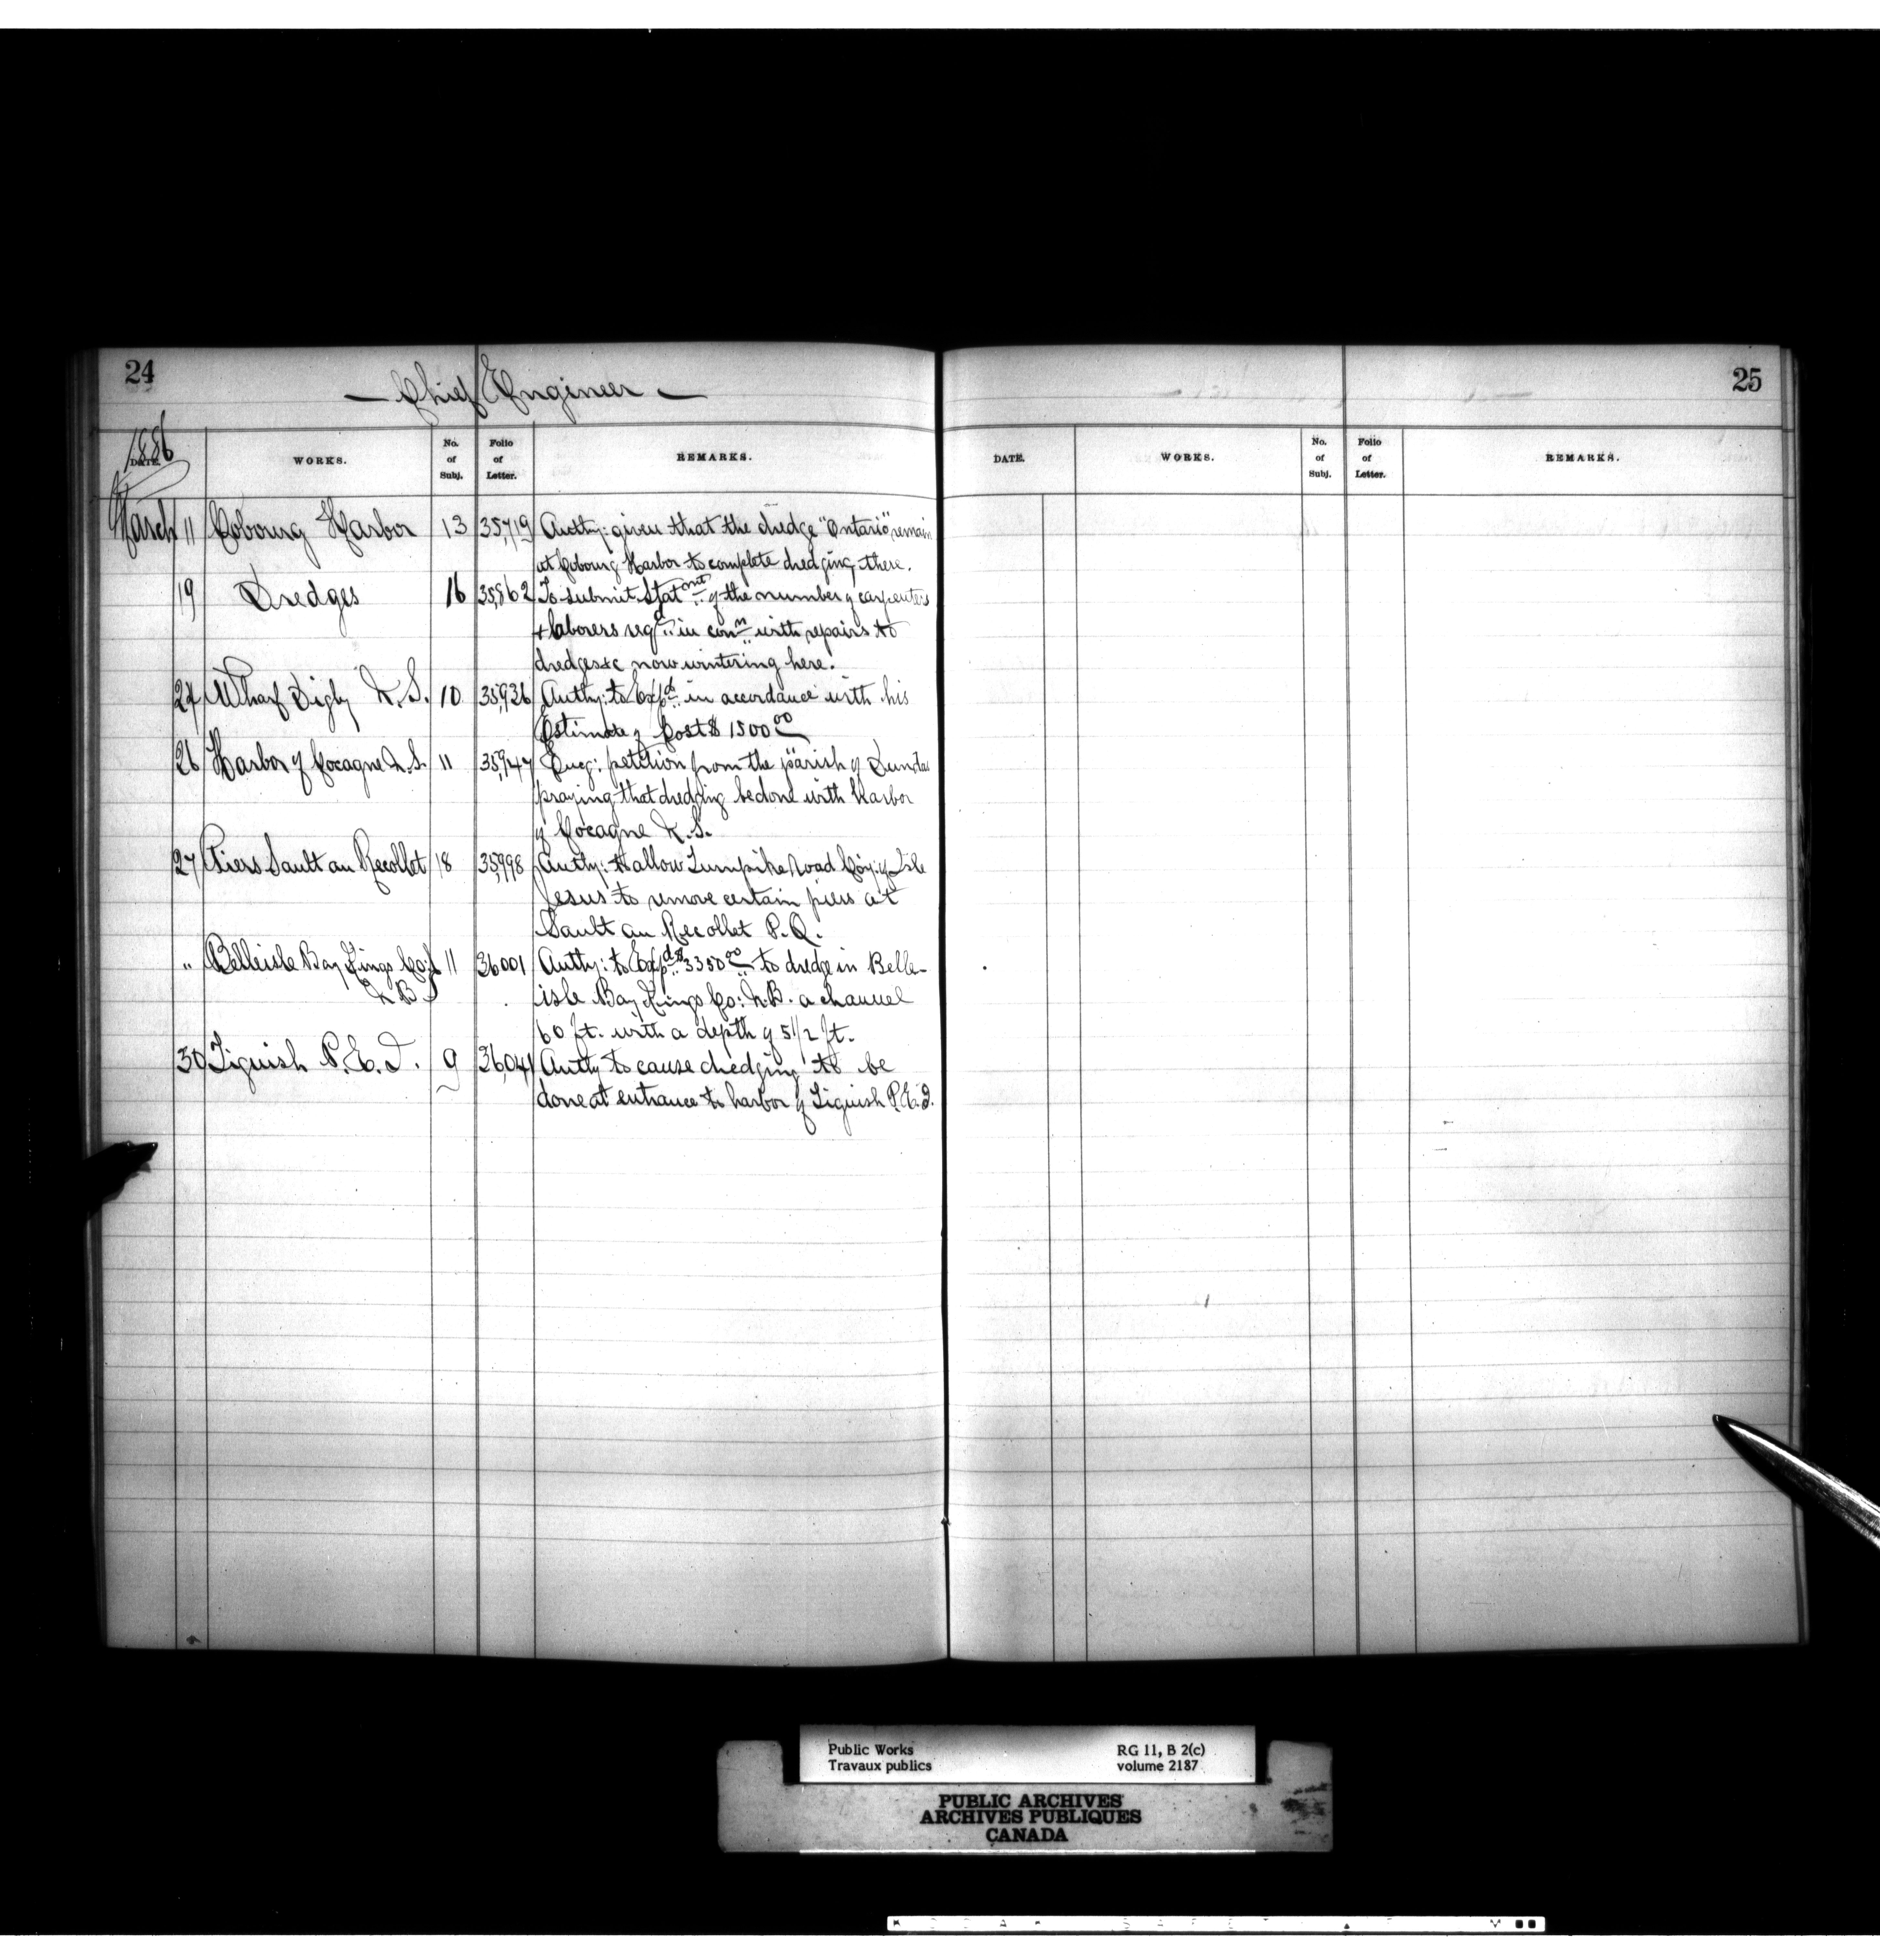 24
— Chief Engineer —
1886
DATE. WORKS. No. of Subj. Folio of Letter. REMARKS.
March 11 Cobourg Harbor 13 35,719 Authy: given that the dredge "Ontario" remain
at Cobourg Harbor to complete dredging there.
19 Dredges 16 35,862 To submit Statmt of the number of carpenters
+ laborers reqd in conn with repairs to
dredges &c now wintering here.
24 Wharf Digby N.S. 10 35,936 Authy: to Expd in accordance with his
Estimate of Cost $1500 00
26 Harbor of Cocagne N.S. 11 35,947 Encg: petition from the parish of Dundas
praying that dredging be done with Harbor
of Cocagne N.S.
27 Piers Sault au Recollet 18 35,998 Authy: to allow Turnpike Road Coy: of Isle
Jesus to remove certain piers at
Sault au Recollet P.Q.
" Belleisle Bay Kings Co: 11 36001 Authy: to Expd $3350 00 to dredge in Belle-
N.B. isle Bay Kings Co: N.B. a channel
60 ft. with a depth of 5 1/2 ft.
30 Tignish P.E.I. 9 36,041 Authy to cause dredging to be
done at entrance to harbor of Tignish P.E.I.
25
DATE. WORKS. No. of Subj. Folio of Letter. REMARKS.
Public Works RG 11, B 2(c)
Travaux publics volume 2187
PUBLIC ARCHIVES
ARCHIVES PUBLIQUES
CANADA